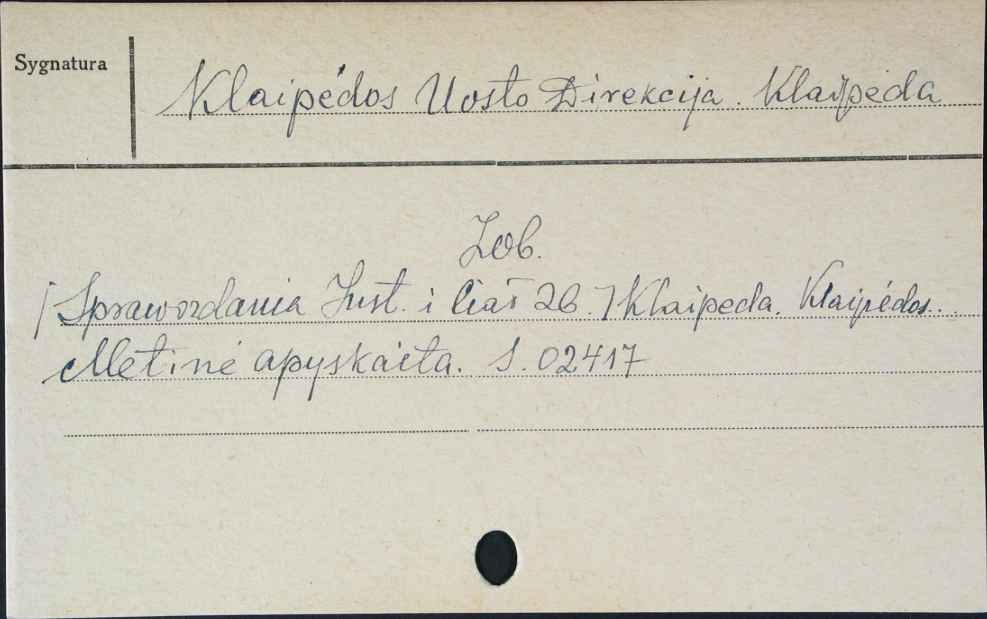 Sygnatura
Klaipėdos Uosto Direkcija. Klaipėda
Zob.
/Sprawozdania Inst. i Ciał 26./Klaipeda. Klaipėdos..
Metinė apyskaita. S. 02417